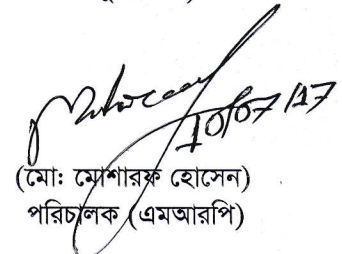 10/07/17
(মো: মোশারফ হোসেন)
পরিচালক (এমআরপি)